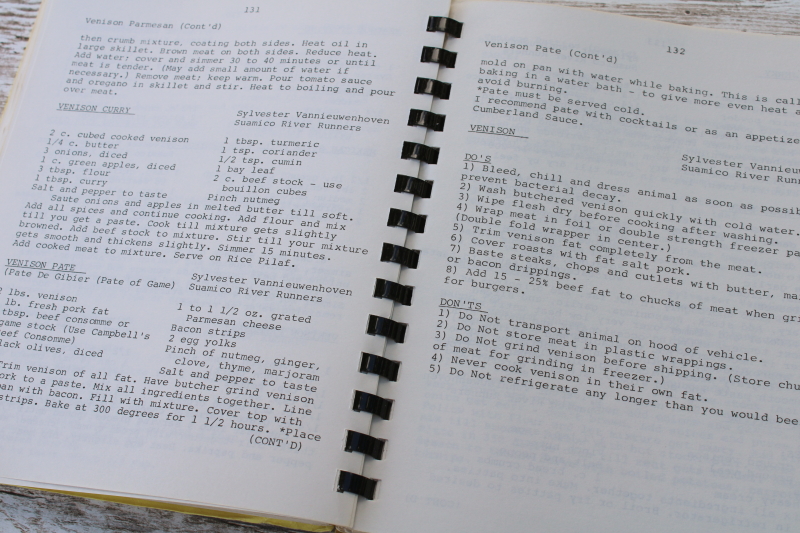 131
Venison Parmesan (Cont'd)
then crumb mixture, coating both sides. Heat oil in
large skillet. Brown meat on both sides. Reduce heat.
Add water: cover and simmer 30 to 40 minutes or until
meat is tender. (May add small amount of water if
necessary.) Remove meat; keep warm. Pour tomato sauce
and oregano in skillet and stir. Heat to boiling and pour
over meat.
VENISON CURRY
Sylvester Vannieuwenhoven
Suamico River Runners
2 c. cubed cooked venison
1/4 c. butter
3 onions, diced
1 c. green apples, diced
3 tbsp. flour
1 tbsp. curry
Salt and pepper to taste
1 tbsp. turmeric
1 tsp. coriander
1/2 tsp. cumin
1 bay leaf
2 c. beef stock - use
bouillon cubes
Pinch nutmeg
Saute onions and apples in melted butter till soft.
Add all spices and continue cooking. Add flour and mix
till you get a paste. Cook till mixture gets slightly
browned. Add beef stock to mixture. Stir till your mixture
gets smooth and thickens slightly. Simmer 15 minutes.
Add cooked meat to mixture. Serve on Rice Pilaf.
VENISON PATE
(Pate De Gibier (Pate of Game)
Sylvester Vannieuwenhoven
Suamico River Runners
2 lbs. venison
lb. fresh pork fat
tbsp. beef consomme or
game stock (Use Campbell's
Beef Consomme)
lack olives, diced
1 to 1 1/2 oz. grated
Parmesan cheese
Bacon strips
2 egg yolks
Pinch of nutmeg, ginger,
clove, thyme, marjoram
Salt and pepper to taste
Trim venison of all fat. Have butcher grind venison
ork to a paste. Mix all ingredients together. Line
pan with bacon. Fill with mixture. Cover top with
strips. Bake at 300 degrees for 1 1/2 hours. *Place
(CONT'D)
132
Venison Pate (Cont'd)
mold on pan with water while baking. This is call
baking in a water bath - to give more even heat a
avoid burning.
*Pate must be served cold.
I recommend pate with cocktails or as an appetize
Cumberland Sauce.
VENISON
Sylvester Vannieuw
Suamico River Runn
DO'S
1) Bleed, chill and dress animal as soon as possib
prevent bacterial decay.
2) Wash butchered venison quickly with cold water.
3) Wipe flesh dry before cooking after washing.
4) Wrap meat in foil or double strength freezer pa
(Double fold wrapper in center.)
5) Trim venison fat completely from the meat.
6) Cover roasts with fat salt pork.
7) Baste steaks, chops and cutlets with butter, ma
or bacon drippings.
8) Add 15 - 25% beef fat to chucks of meat when gri
for burgers.
DON'TS
1) Do Not transport animal on hood of vehicle.
2) Do Not store meat in plastic wrappings.
3) Do Not grind venison before shipping. (Store chu
of meat for grinding in freezer.)
4) Never cook venison in their own fat.
5) Do Not refrigerate any longer than you would bee